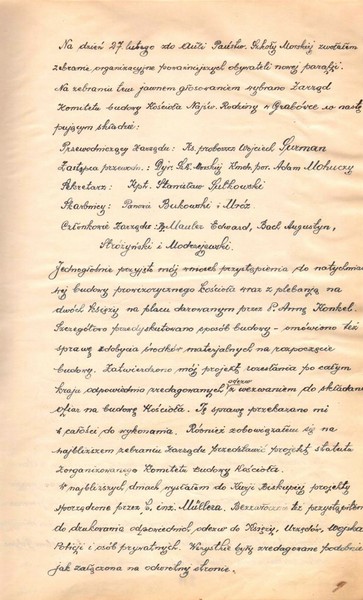 Na dzień 27 lutego do Auli Państw. Szkoły Morskiej zwołałem
zebranie organizacyjne poważniejszych obywateli nowej parafji.
Na zebraniu tem jawnem głosowaniem wybrano Zarząd
Komitetu budowy Kościoła Najśw. Rodziny w Grabówce w nastę
pującym składzie:
Przewodniczący Zarządu: Ks. proboszcz Wojciech
Zastępca przewodn.: Dyr. Szk. Morskiej Kmdr. por. Adam Mohuczy
Sekretarz: Kpt. Stanisław
Skarbnicy: Panowie Bukowski i Mróz
Członkowie Zarządu: Mauler Edward, Bach Augustyn,
Stróżyński i Modrzejewski.
Jednogłośnie przyjęto mój wniosek przystąpienia do natychmia
stej budowy prowizorycznego Kościoła wraz z plebanją na
dwóch Księży na placu darowanym przez P. Annę Konkel.
Szczegółowo przedyskutowano sposób budowy - omówiono też
sprawę zdobycia środków materjalnych na rozpoczęcie
budowy. Zatwierdzono mój projekt rozesłania po całym
kraju odpowiednio zredagowanych odezw z wezwaniem do składania
ofiar na budowę Kościoła. Tę sprawę przekazano mi
w całości do wykonania. Również zobowiązałem się na
najbliższem zebraniu Zarządu przedstawić projekt statutu
zorganizowanego Komitetu Budowy Kościoła.
W najbliższych dniach wysłałem do Kurji Biskupiej projekty
sporządzone przez inż. Müllera. Bezzwłocznie też przystąpiłem
do drukowania odpowiednich odezw do Księży, Urzędów, Wojska
Policji i osób prywatnych. Wszystkie były zredagowane podobnie
jak załączona na odwrotnej stronie.